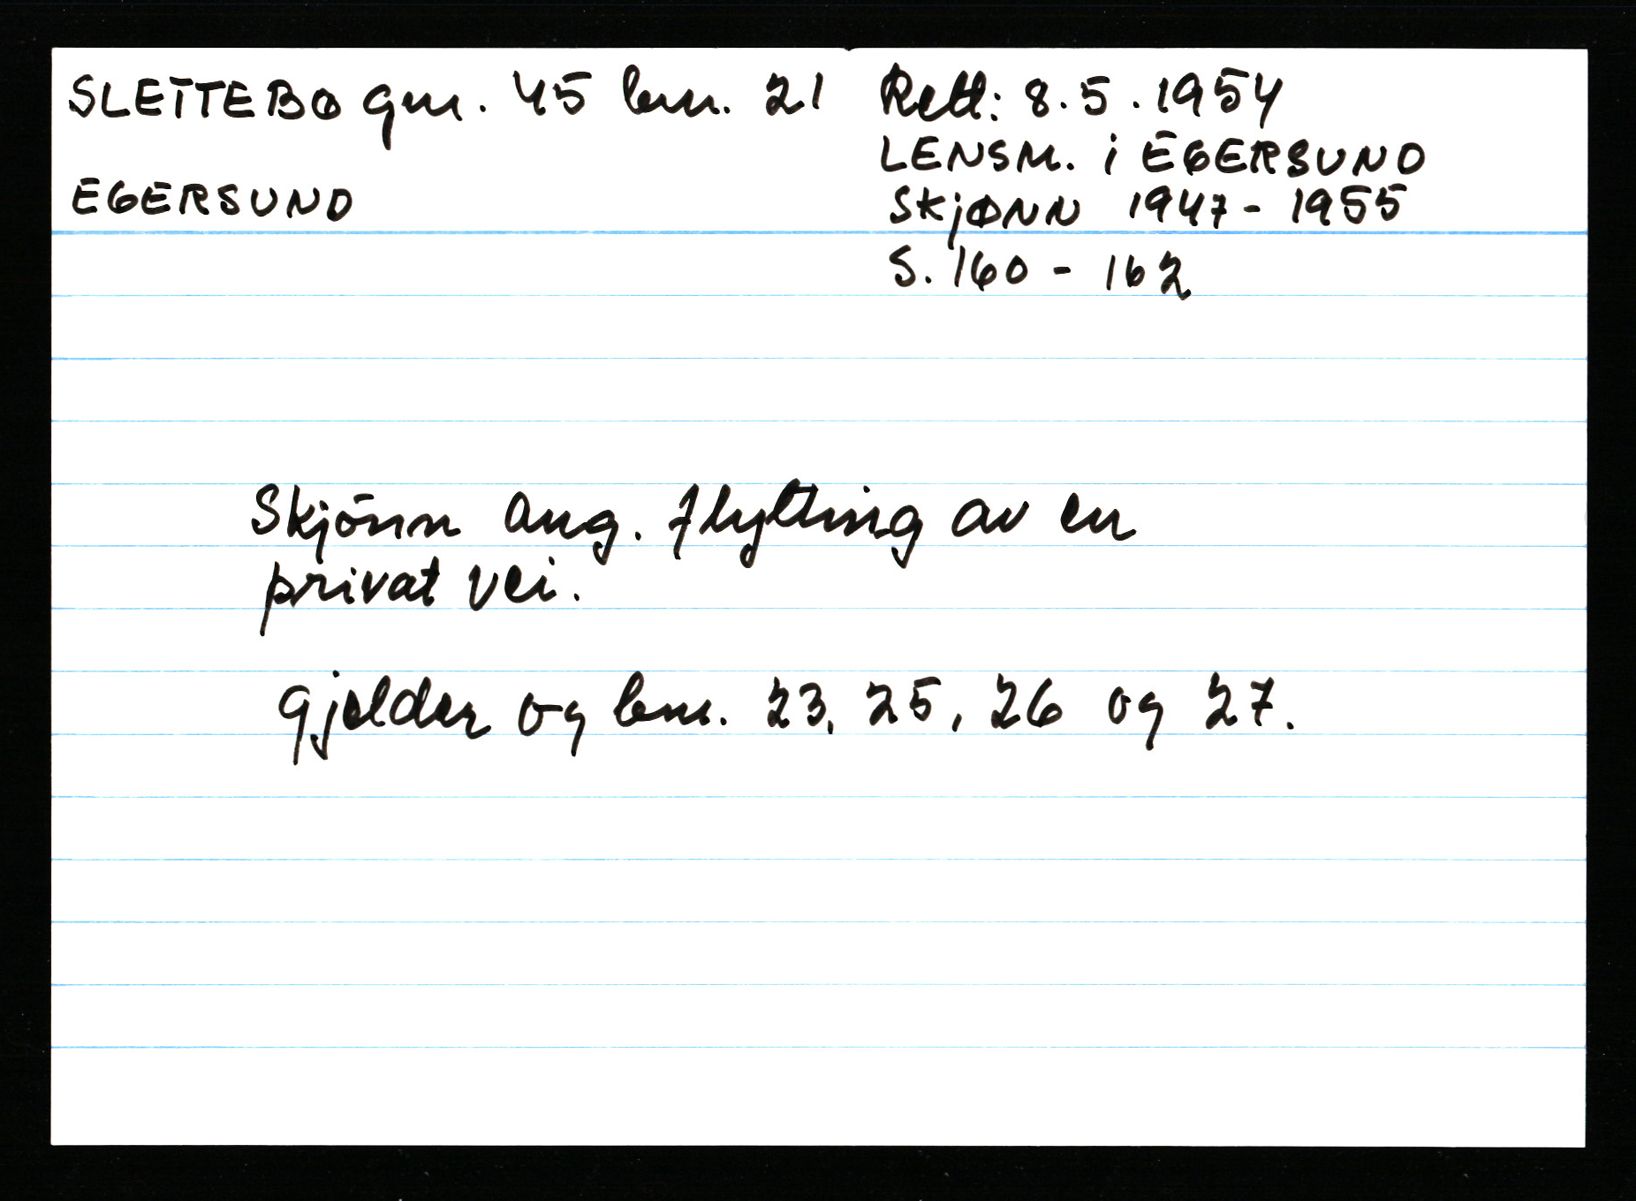 SLETTEBØ gnr. 45 bnr. 21
EGERSUND
Rett: 8.5.1954
LENSM. i EGERSUND
SKJØNN 1947-1955
S. 160 - 162
Skjönn ang. flytting av en
privat vei.
Gjelder og bnr. 23, 25, 26 og 27.